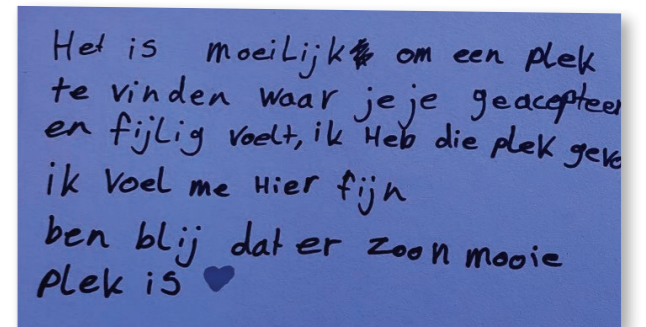 Het is moeilijk om een plek
te vinden waar je je geacepteer
en fijlig voelt, ik Heb die plek geve
ik voel me Hier fijn
ben blij dat er zoon mooie
plek is ♥